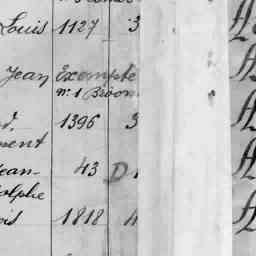 Louis 1127 3
Jean Exempte
n° 1 Broom
1396 3
ment
Jean- 43 D
alphe
ois 1818 4